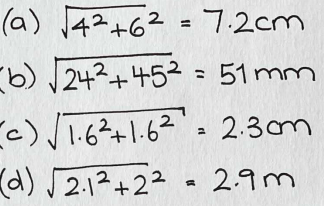 (a) √4²+6² = 7.2cm
(b) √24²+45² = 51mm
(c) √1.6²+1.6² = 2.3cm
(d) √2.1²+2² = 2.9m